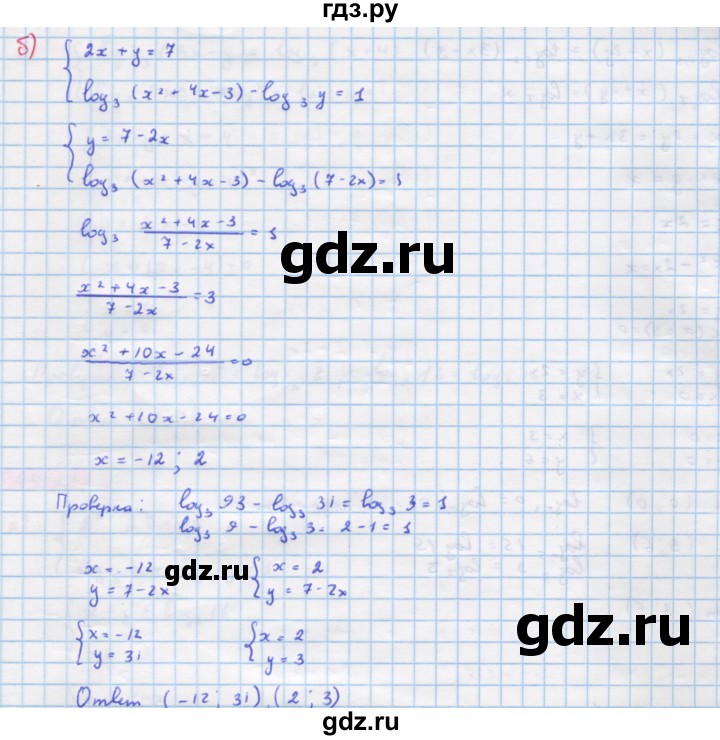 гдз.ру
б)
{ 2x + y = 7
log₃ (x² + 4x - 3) - log₃ y = 1
{ y = 7 - 2x
log₃ (x² + 4x - 3) - log₃ (7 - 2x) = 1
log₃ (x² + 4x - 3)/(7 - 2x) = 1
gdz.ru
(x² + 4x - 3)/(7 - 2x) = 3
(x² + 10x - 24)/(7 - 2x) = 0
x² + 10x - 24 = 0
x = -12 ; 2
Проверка: log₃ 93 - log₃ 31 = log₃ 3 = 1
log₃ 9 - log₃ 3 = 2 - 1 = 1
x = -12 { x = 2
y = 7 - 2x y = 7 - 2x
gdz.ru
{ x = -12 { x = 2
y = 31 y = 3
gdz.ru
Ответ (-12; 31) (2; 3)
gdz.ru